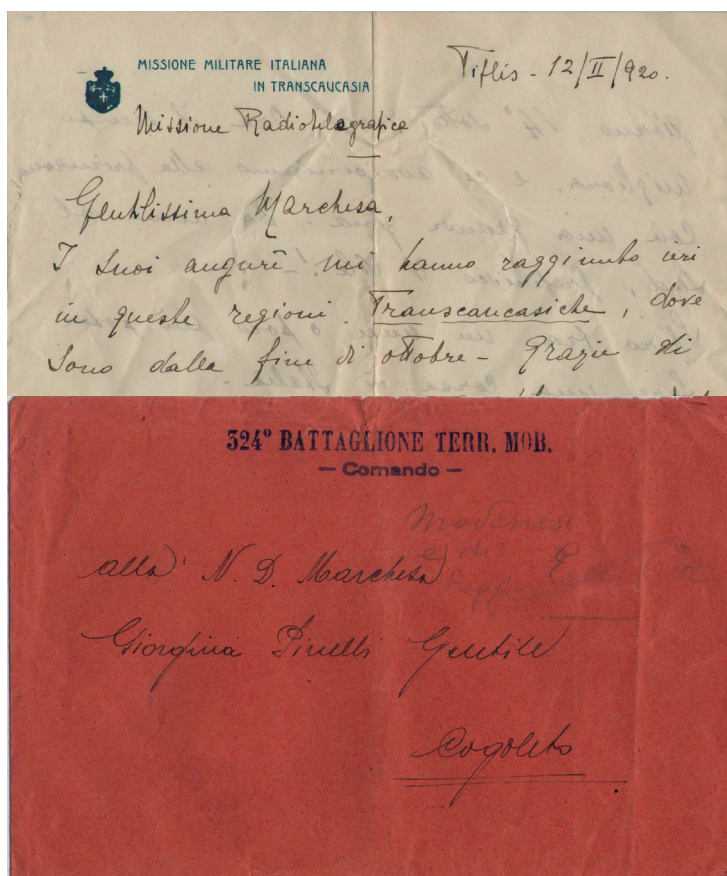 MISSIONE MILITARE ITALIANA
IN TRANSCAUCASIA
Tiflis - 12/II/920.
Missione Radiotelegrafica
Gentilissima Marchesa,
I suoi augurî mi hanno raggiunto ieri
in queste regioni Transcaucasiche, dove
sono dalla fine di ottobre - Grazie di
324º BATTAGLIONE TERR. MOB.
— Comando —
alla N. D. Marchesa
Giorgina Pinelli Gentile
Cogoleto